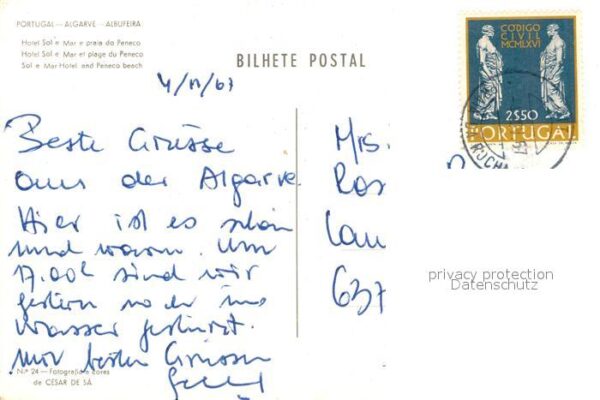 PORTUGAL — ALGARVE — ALBUFEIRA
Hotel Sol e Mar e praia do Peneco
Hotel Sol e Mar et plage du Peneco
Sol e Mar Hotel and Peneco beach
BILHETE POSTAL
CODIGO
CIVIL
MCMLXVI
2$50
PORTUGAL
Beste Grüsse
aus der Algarve.
Hier ist es schön
und warm. Um
17.00h sind wir
gestern noch ins
Wasser gestürzt.
Mit besten Grüssen
Mrs.
Ros
Lau
637
privacy protection
Datenschutz
Nº 24 — Fotografia e cores
de CÉSAR DE SÁ